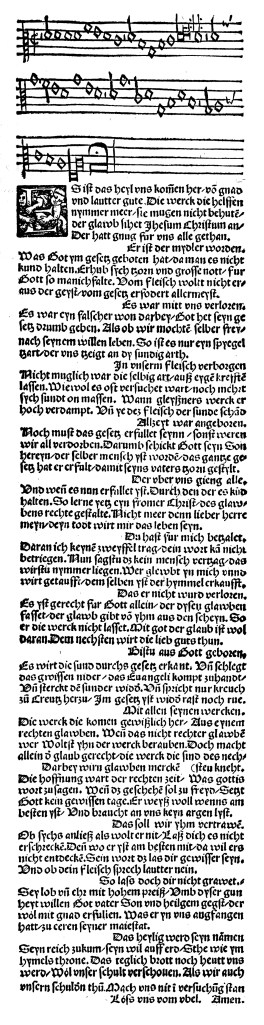 Es ist das heyl vns komen her/ võ gnad
vnd lautter gute. Die werck die helffen
nymmer meer/ sie mugen nicht behutē/
der glawb sihet Jhesum Christum an/
Der hatt gnug fur vns alle gethan.
Er ist der mydler worden.
Was Got ym gesetz geboten hat/ da man es nicht
kund halten. Erhub sych tzorn vnd grosse nott/ fur
Gott so manichfalte. Vom fleisch wolt nicht er/
aus der geyst/ vom gesetz erfodert allermeyst.
Es war mit vns verloren.
Es war eyn falscher won darbey/ Got het seyn ge
setz drumb geben. Als ob wir mochtē selber frey/
nach seynem willen leben. So ist es nur eyn spyegel
tzart/ der vns tzeigt an dy sundig arth.
In vnserm fleisch verborgen
Nicht muglich war die selbig art/ auß eygē krefftē
lassen. Wiewol es oft versuchet wart/ noch mehrt
sych sundt on massen. Wann gleyßners werck er
hoch verdampt. Vñ ye dez fleisch der sunde schād
Allzeyt war angeboren.
Noch must das gesetz erfullet seyn/ sonst weren
wir all verdorben. Darumb schickt Gott seyn Son
hereyn/ der selber mensch yst wordē/ das gantze ge
setz hat er erfult/ damit seyns vaters tzorn gestylt.
Der vber vns gieng alle.
Vnd weñ es nun erfullet yst/ Durch den der es kūd
halten. So lerne yetz eyn fromer Christ/ des glaw/
bens rechte gestalte. Nicht meer denn lieber herre
meyn/ deyn todt wirt mir das leben seyn.
Du hast fur mich betzalet.
Daran ich keynē zweyffel trag/ dein wort kā nicht
betriegen. Nun sagstu dz kein mensch vertzag/ das
wirstu nymmer liegen. Wer glewbt yn mich vnnd
wirt getaufft/ dem selben yst der hymmel erkaufft.
Das er nicht wurd verloren.
Es yst gerecht fur Gott allein/ der dysen glawben
fasset/ der glawb gibt võ yhm aus den scheyn. So
er die werck nicht lasset. Mit got der glaub ist wol
daran. Dem nechsten wirt die lieb guts thun.
Bistu aus Gott geboren.
Es wirt die sund durchs gesetz erkant. Vñ schlegt
das gwissen nider/ das Euangeli kompt zuhandt/
Vñ sterckt dē sunder widō. Vñ spricht nur kreuch
zū Creutz herzu/ Im gesetz yst widō rast noch rue.
Mit allen seynen wercken.
Die werck die komen gewißlich her/ Aus eynem
rechten glawben. Weñ das nicht rechter glawbē
wer Wolst yhn der werck berauben. Doch macht
allein ō glaub gerecht/ die werck die sind des nech/
Darbey wirn glawben merckē (sten knecht.
Die hoffnung wart der rechten zeit/ Was gottis
wort zusagen. Weñ dz geschehē sol zu freyd/ Setzt
Gott kein gewissen tage. Er weyß woll wenns am
besten yst/ Vnd braucht an vns keyn argen lyst.
Das soll wir yhm vertrawē.
Ob sychs anließ als wolt er nit/ Laß dich es nicht
erschreckē. Deñ wo er yst am besten mit/ da wil ers
nicht entdeckē. Sein wort dz las dir gewisser seyn.
Vnd ob dein fleisch sprech lautter nein.
So laß doch dir nicht grawen.
Sey lob vñ ehr mit hohem preiß/ Vmb dyser gut
heyt willen Got vater Son vnd heilgem geyst/ der
wöl mit gnad erfullen. Was er yn vns angfangen
hatt/ zu ceren seyner maiestat.
Das heylig werd seyn namen
Seyn reich zukum/ seyn wil auff erd/ Sthe wie ym
hymels throne. Das teglich brott noch heutt vns
werd/ Wöl vnser schult verschonen. Als wir auch
vnsern schulōn thū. Mach vns nit ī versuchūg stan
Loß vns vom vbel. Amen.